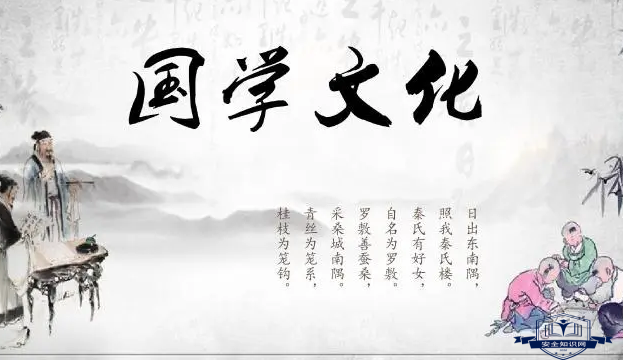 国学文化
日出东南隅，
照我秦氏楼。
秦氏有好女，
自名为罗敷。
罗敷善蚕桑，
采桑城南隅。
青丝为笼系，
桂枝为笼钩。
安全知识网